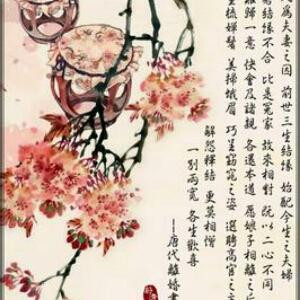 為夫妻之因 前世三生結緣 始配今生之夫婦
結緣不合 比是冤家 故來相對 既以二心不同
難歸一意 快會及諸親 各還本道 願娘子相
梳嬋鬢 美掃娥眉 巧呈窈窕之姿 選聘高官之
解怨釋結 更莫相憎
一別兩寬 各生歡喜
——唐代離婚書